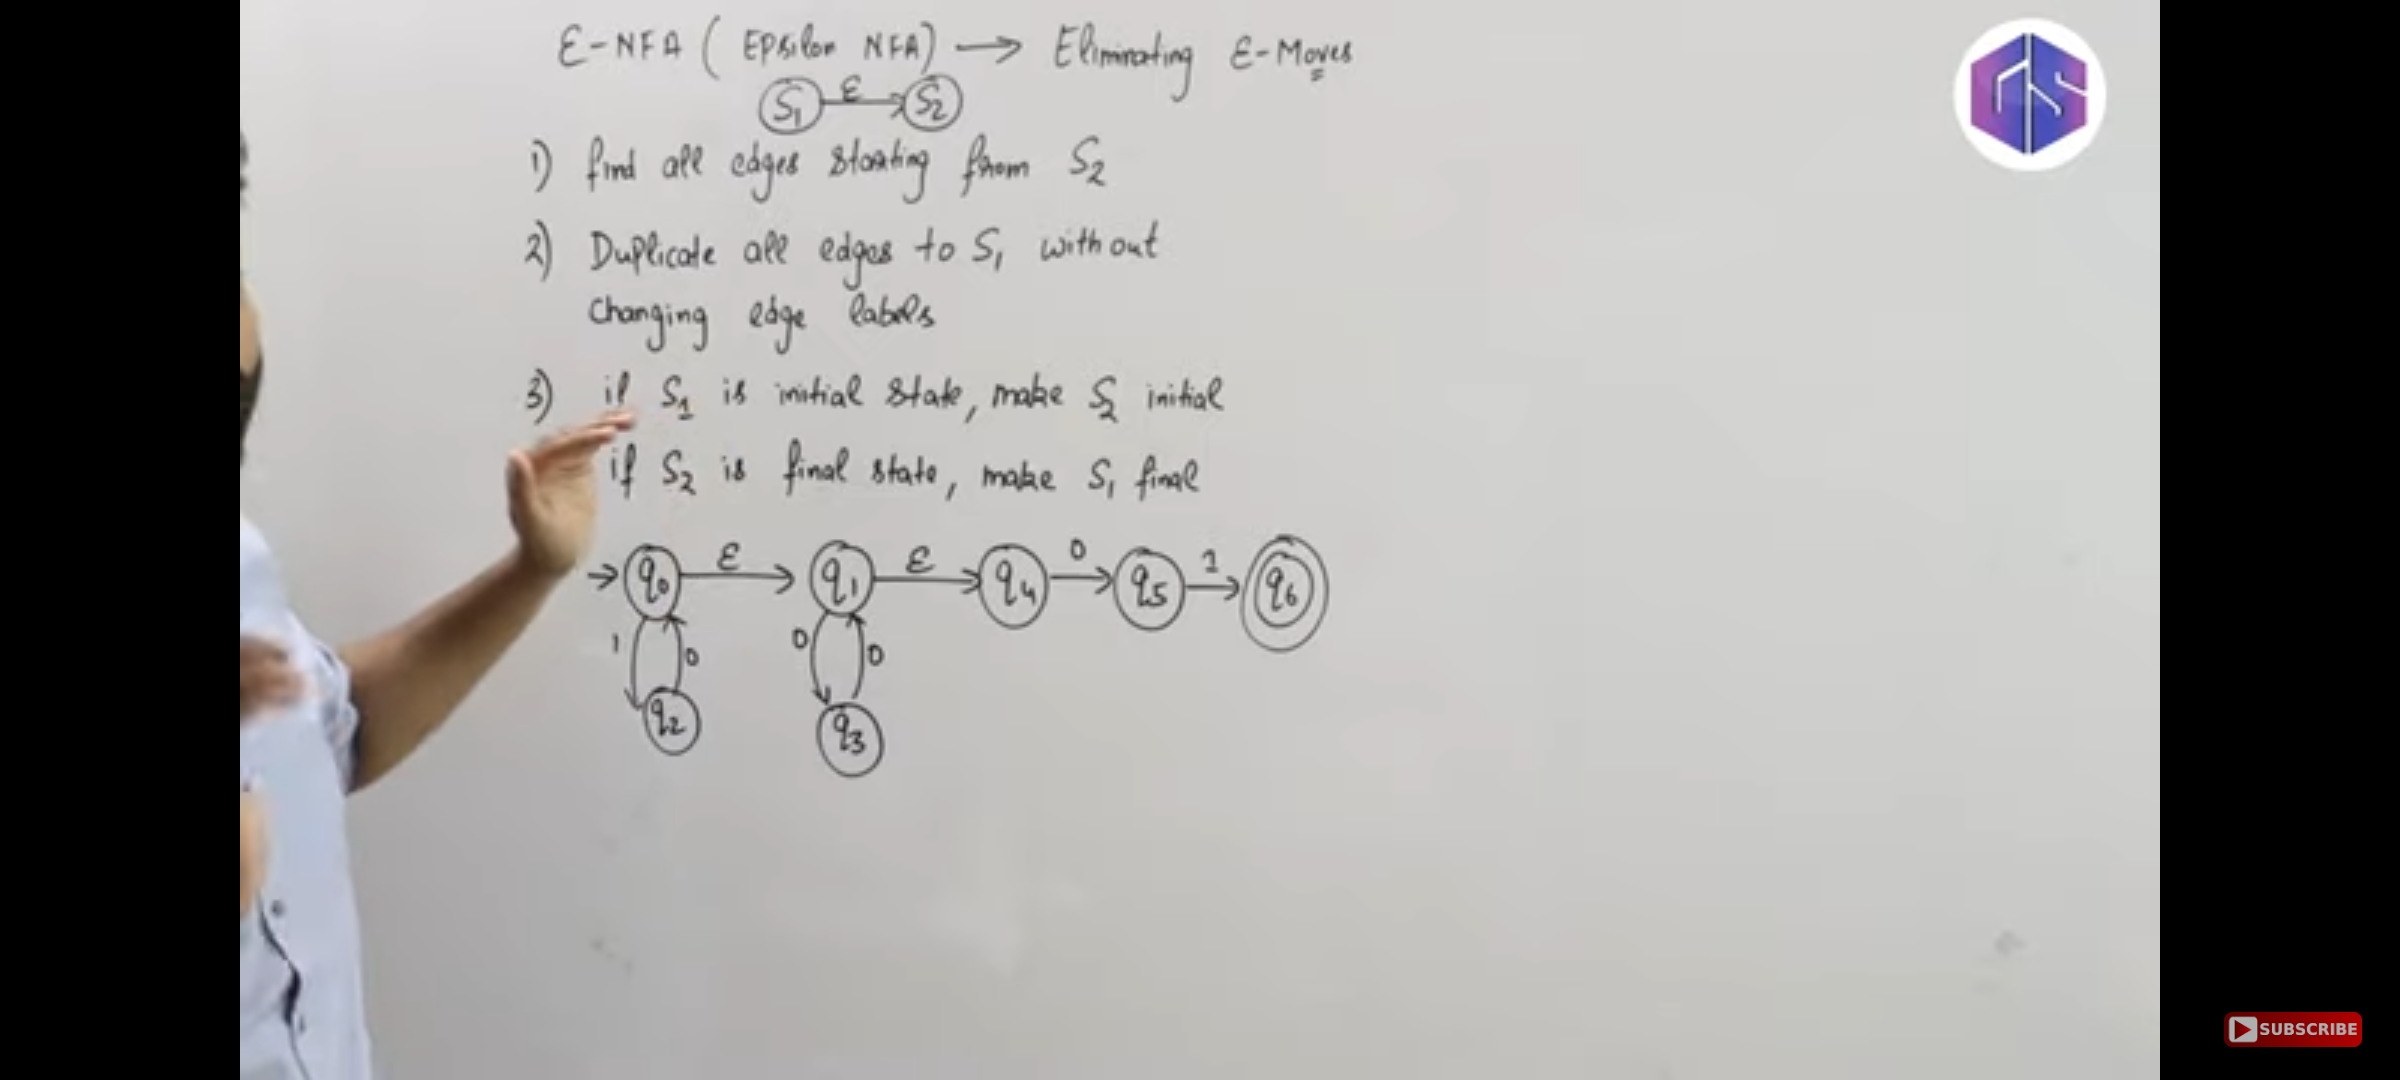 ε-NFA ( Epsilon NFA) → Eliminating ε-Moves
S1 ε S2
1) find all edges starting from S2
2) Duplicate all edges to S1 without
Changing edge labels
3) if S1 is initial state, make S2 initial
if S2 is final state, make S1 final
q0 ε q1 ε q4 0 q5 1 q6
1 0 0 0
q2 q3
GS
SUBSCRIBE